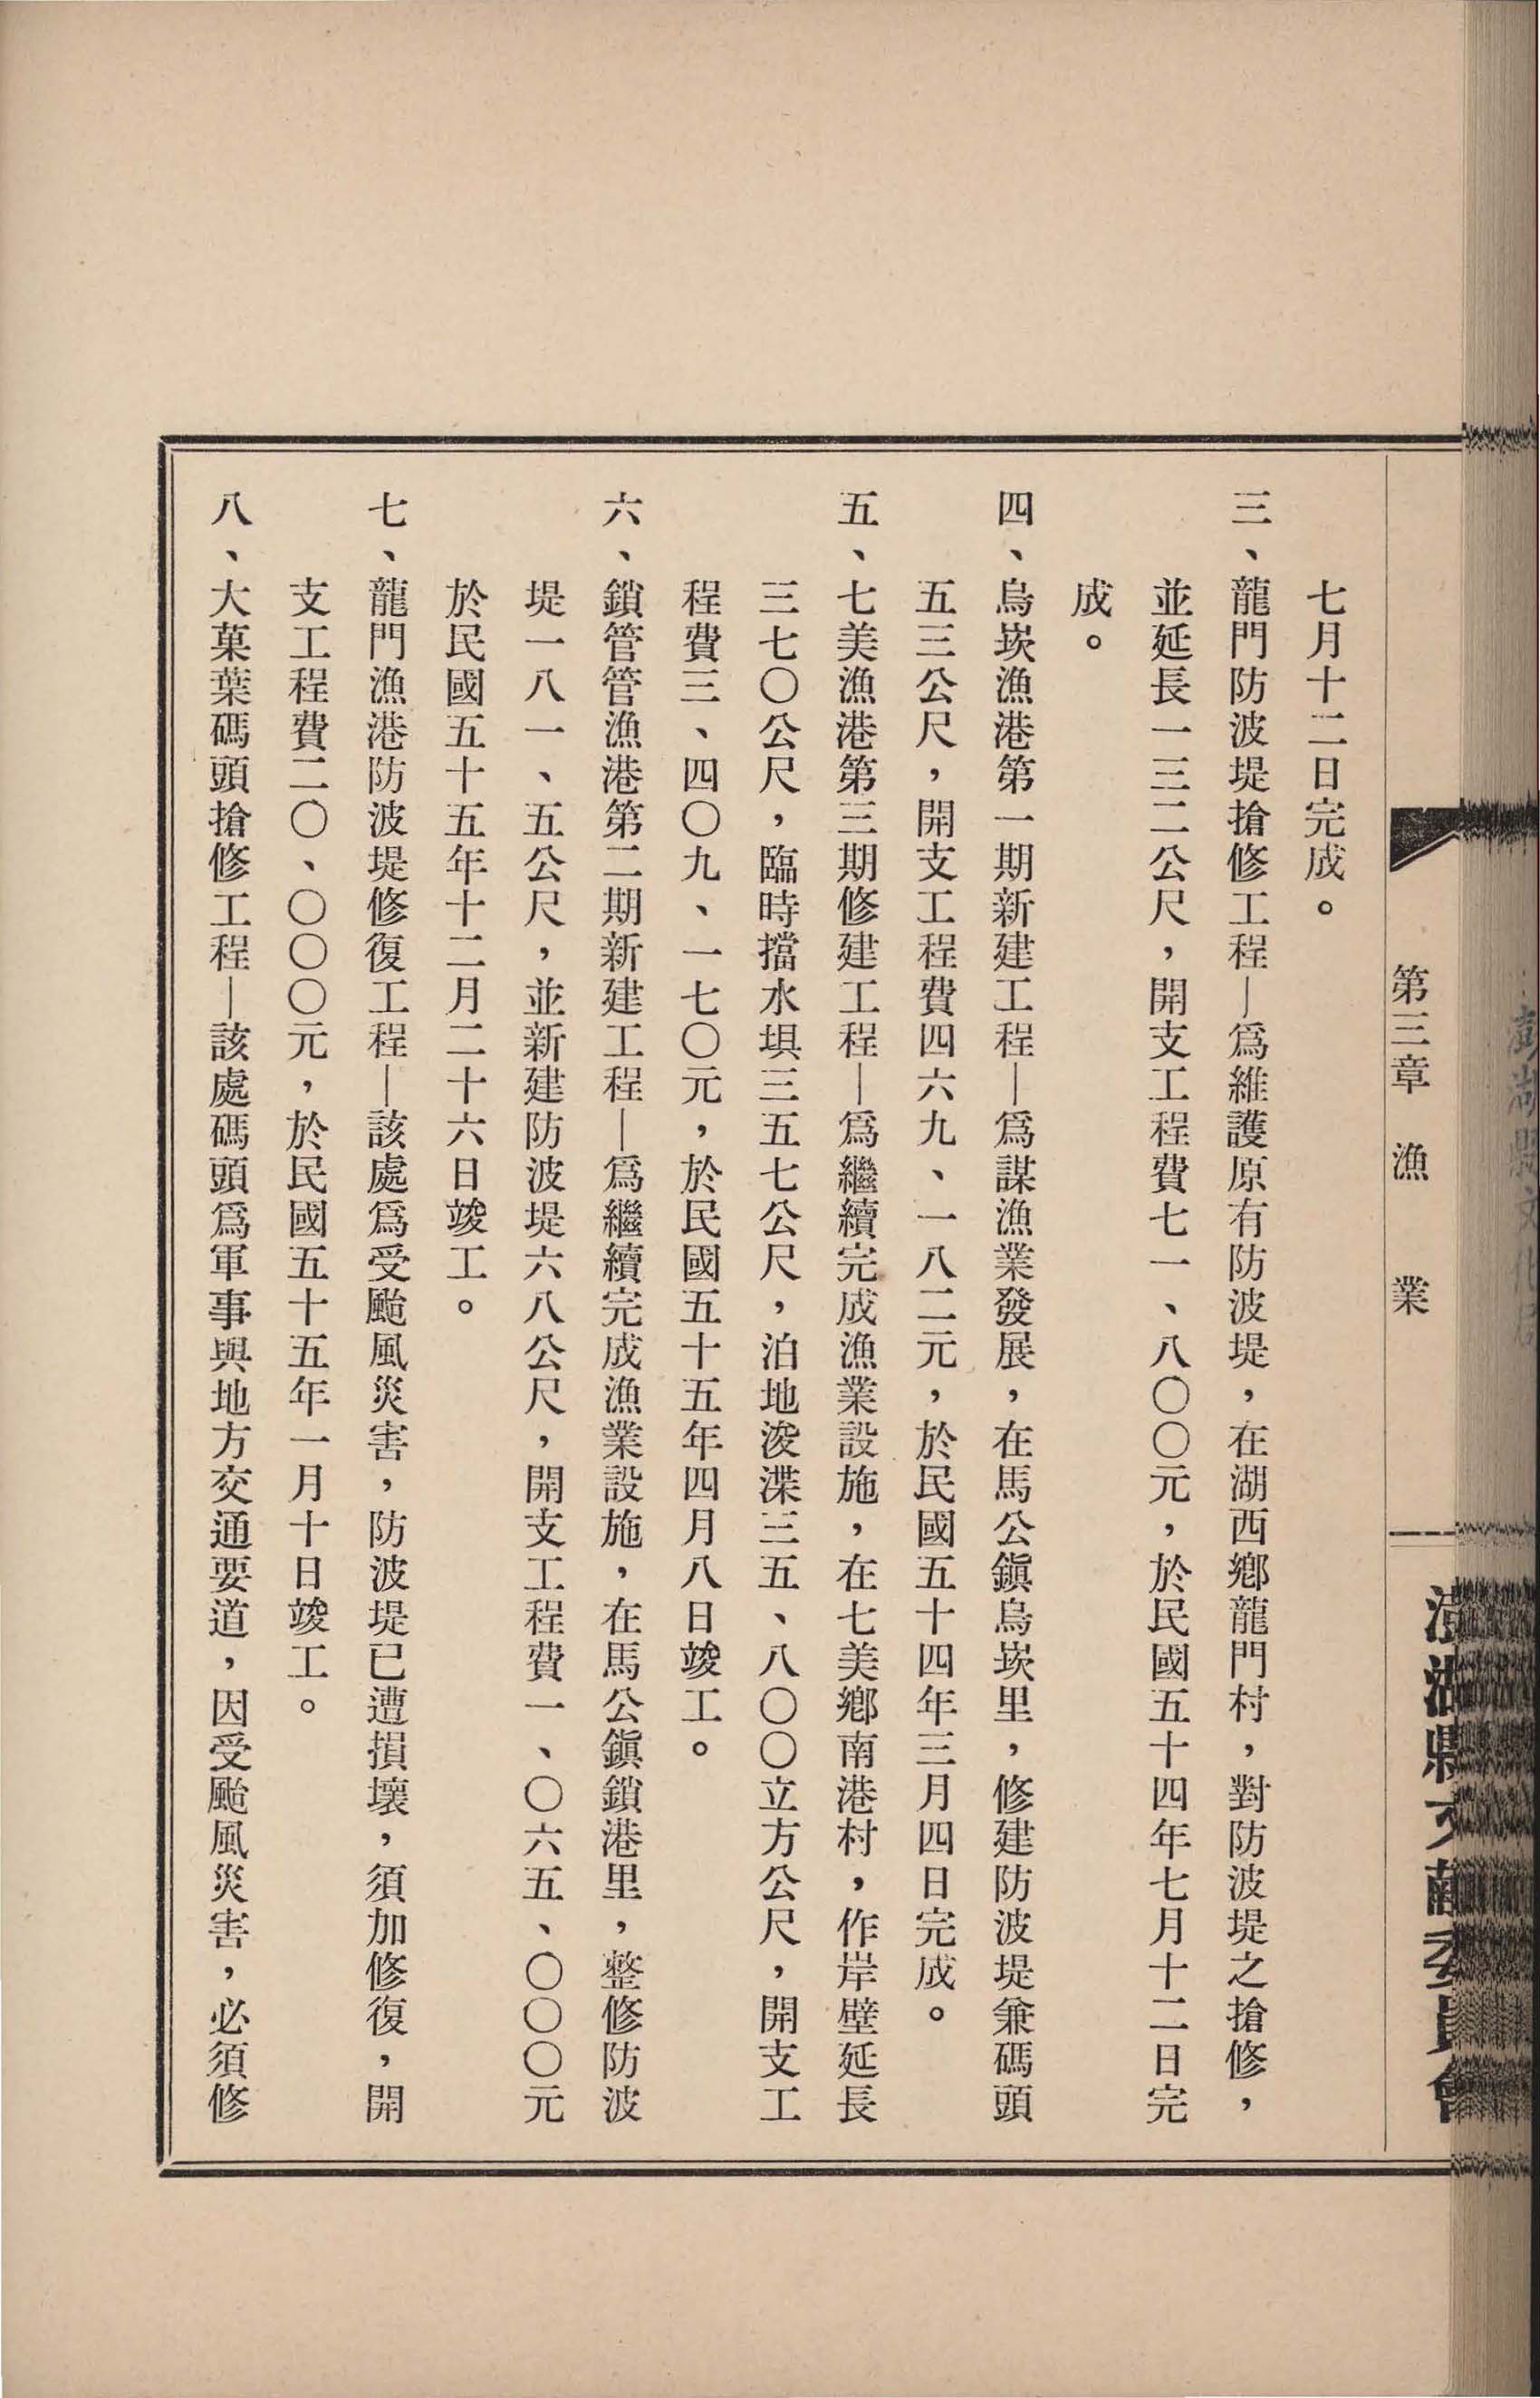 第三章　漁　業
七月十二日完成。
三、龍門防波堤搶修工程—爲維護原有防波堤，在湖西鄉龍門村，對防波堤之搶修，
並延長一三二公尺，開支工程費七一、八〇〇元，於民國五十四年七月十二日完
成。
四、烏崁漁港第一期新建工程—爲謀漁業發展，在馬公鎭烏崁里，修建防波堤兼碼頭
五三公尺，開支工程費四六九、一八二元，於民國五十四年三月四日完成。
五、七美漁港第三期修建工程—爲繼續完成漁業設施，在七美鄉南港村，作岸壁延長
三七〇公尺，臨時擋水埧三五七公尺，泊地浚渫三五、八〇〇立方公尺，開支工
程費三、四〇九、一七〇元，於民國五十五年四月八日竣工。
六、鎖管管漁港第二期新建工程—爲繼續完成漁業設施，在馬公鎭鎖港里，整修防波
堤一八一、五公尺，並新建防波堤六八公尺，開支工程費一、〇六五、〇〇〇元
於民國五十五年十二月二十六日竣工。
七、龍門漁港防波堤修復工程—該處爲受颱風災害，防波堤已遭損壞，須加修復，開
支工程費二〇、〇〇〇元，於民國五十五年一月十日竣工。
八、大菓葉碼頭搶修工程—該處碼頭爲軍事與地方交通要道，因受颱風災害，必須修